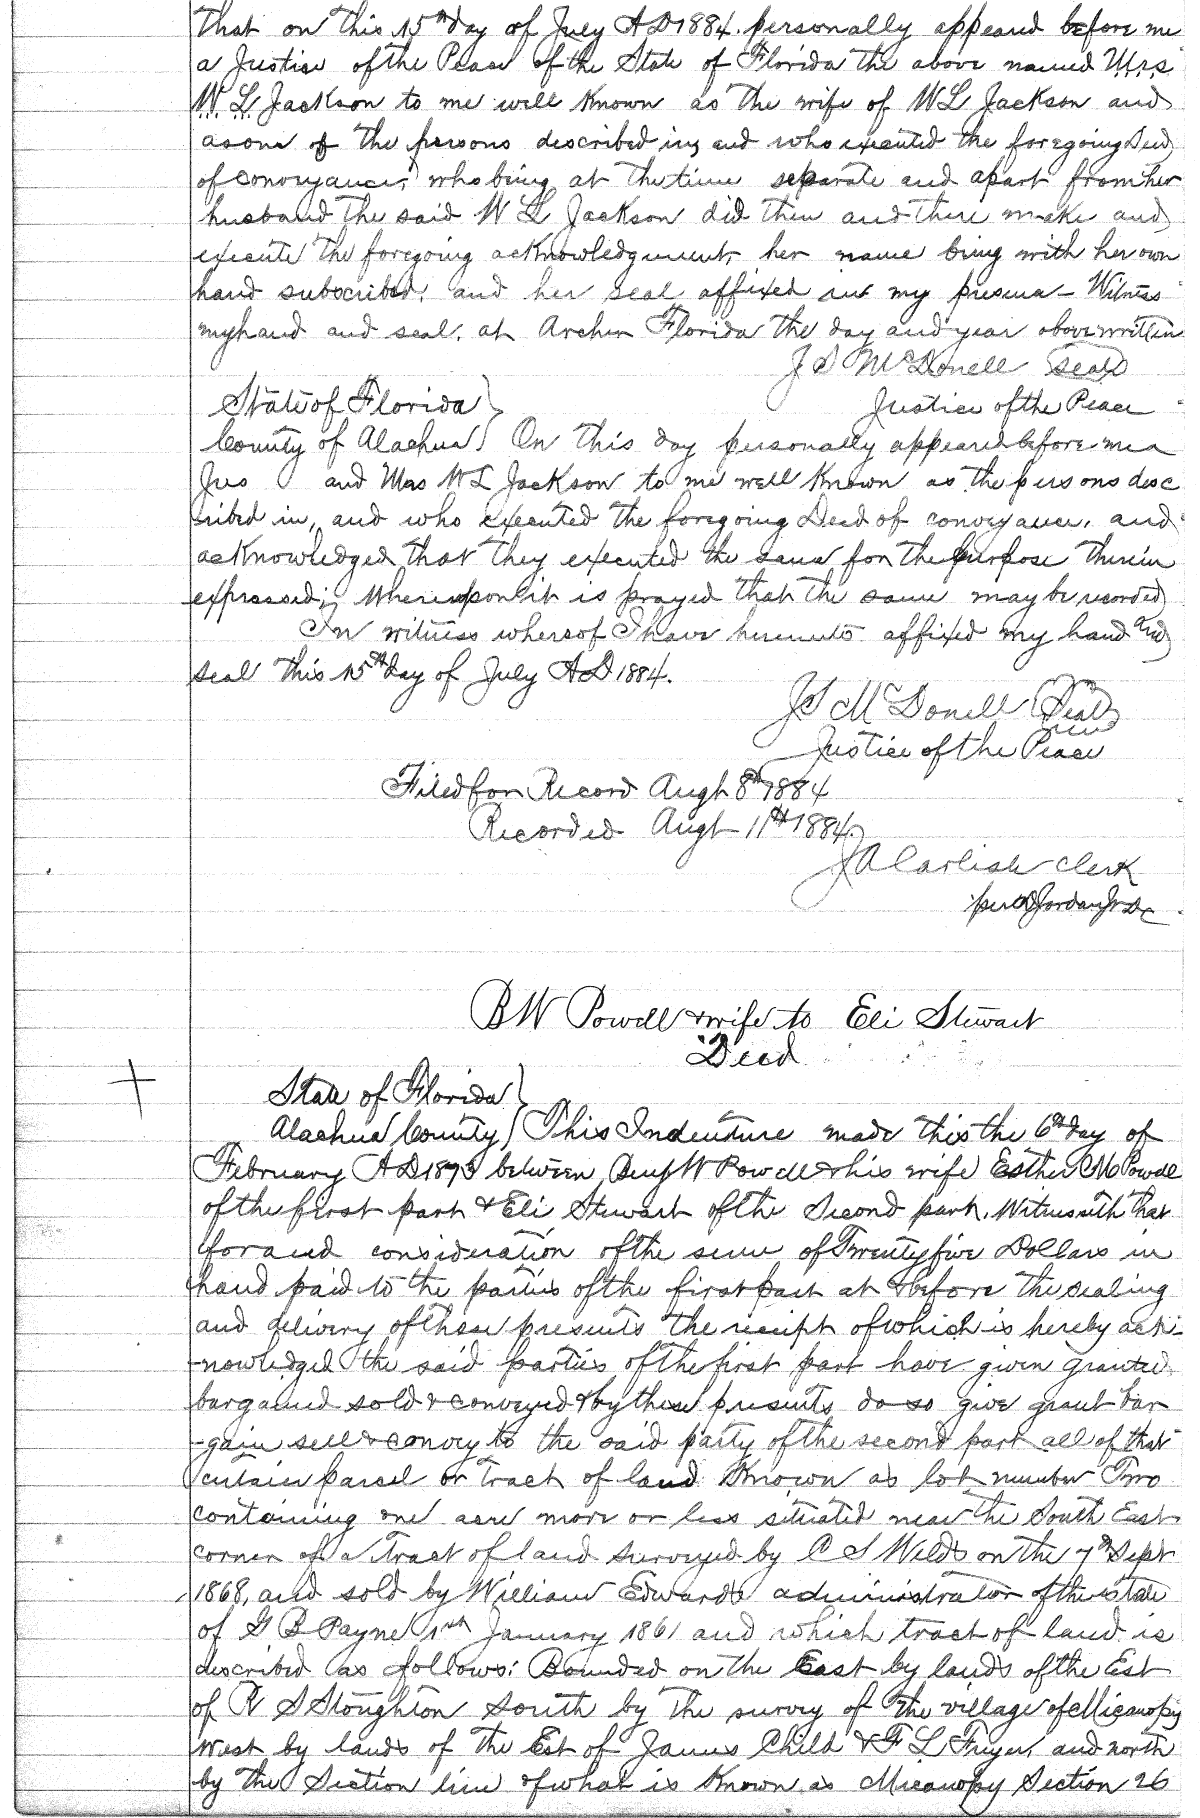 That on this 15th day of July AD 1884. personally appeared before me
a Justice of the Peace of the State of Florida the above named Mrs
W. L. Jackson to me well Known as the wife of W L Jackson and
as one of the persons described in, and who executed the foregoing Deed
of conveyance, who being at the time separate and apart from her
husband the said W L Jackson did then and there make and
execute the foregoing acknowledgment, her name being with her own
hand subscribed, and her seal affixed in my presence – Witness
my hand and seal, at Archer Florida the day and year above written
J S McDonell Seal
State of Florida } Justice of the Peace
County of Alachua } On this day personally appeared before me a
Jus and Mrs W L Jackson to me well Known as the persons desc
ribed in, and who executed the foregoing Deed of conveyance, and
acknowledged that they executed the same for the purpose therein
expressed; Whereupon it is prayed that the same may be recorded
In witness whereof I have hereunto affixed my hand and
seal this 15th day of July AD 1884.
J S McDonell Seal
Justice of the Peace
Filed for Record Augt 8th 1884
Recorded Augt 11th 1884.
J A Carlisle Clerk
per Jordan Jr DC
B W Powell & wife to Eli Stewart
Deed
State of Florida }
Alachua County } This Indenture made this the 6th day of
February AD 1873 between Benj W Powell & his wife Esther M Powell
of the first part & Eli Stewart of the Second part, Witnesseth that
for and consideration of the sum of Twenty five Dollars in
hand paid to the parties of the first part at & before the sealing
and delivery of these presents the receipt of which is hereby ack-
-nowledged the said parties of the first part have given granted
bargained sold & conveyed & by these presents do so give grant bar
-gain sell & convey to the said party of the second part all of that
certain parcel or tract of land Known as lot number Two
containing one acre more or less situated near the South East
corner of a tract of land surveyed by C S Wilds on the 7th Sept
1868, and sold by William Edwards administrator of the estate
of G B Payne January 1861 and which tract of land is
described as follows: Bounded on the East by lands of the Est
of R S Stoughton South by the survey of the village of Micanopy
West by lands of the Est of James Child & F L Fryer, and north
by the Section line of what is Known as Micanopy Section 26